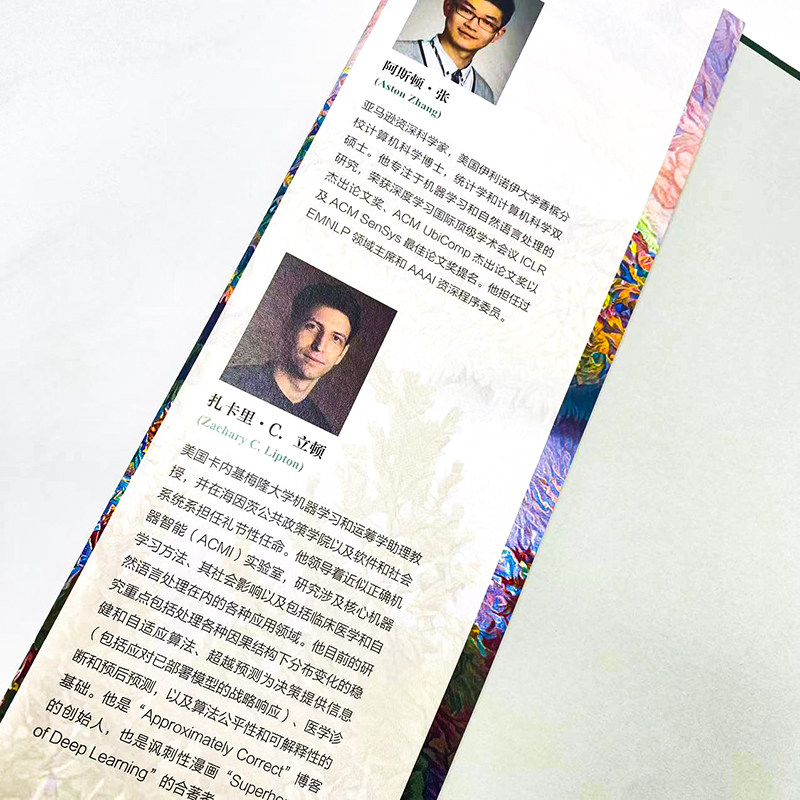 阿斯顿·张
(Aston Zhang)
亚马逊资深科学家，美国伊利诺伊大学香槟分
校计算机科学博士，统计学和计算机科学双
硕士。他专注于机器学习和自然语言处理的
研究，荣获深度学习国际顶级学术会议 ICLR
杰出论文奖、ACM UbiComp 杰出论文奖以
及 ACM SenSys 最佳论文奖提名。他担任过
EMNLP 领域主席和 AAAI 资深程序委员。
扎卡里·C. 立顿
(Zachary C. Lipton)
美国卡内基梅隆大学机器学习和运筹学助理教
授，并在海因茨公共政策学院以及软件和社会
系统系担任礼节性任命。他领导着近似正确机
器智能（ACMI）实验室，研究涉及核心机器
学习方法、其社会影响以及包括临床医学和自
然语言处理在内的各种应用领域。他目前的研
究重点包括处理各种因果结构下分布变化的稳
健和自适应算法、超越预测为决策提供信息
（包括应对已部署模型的战略响应）、医学诊
断和预后预测，以及算法公平性和可解释性的
基础。他是“Approximately Correct”博客
的创始人，也是讽刺性漫画“Superhe
of Deep Learning”的合著者